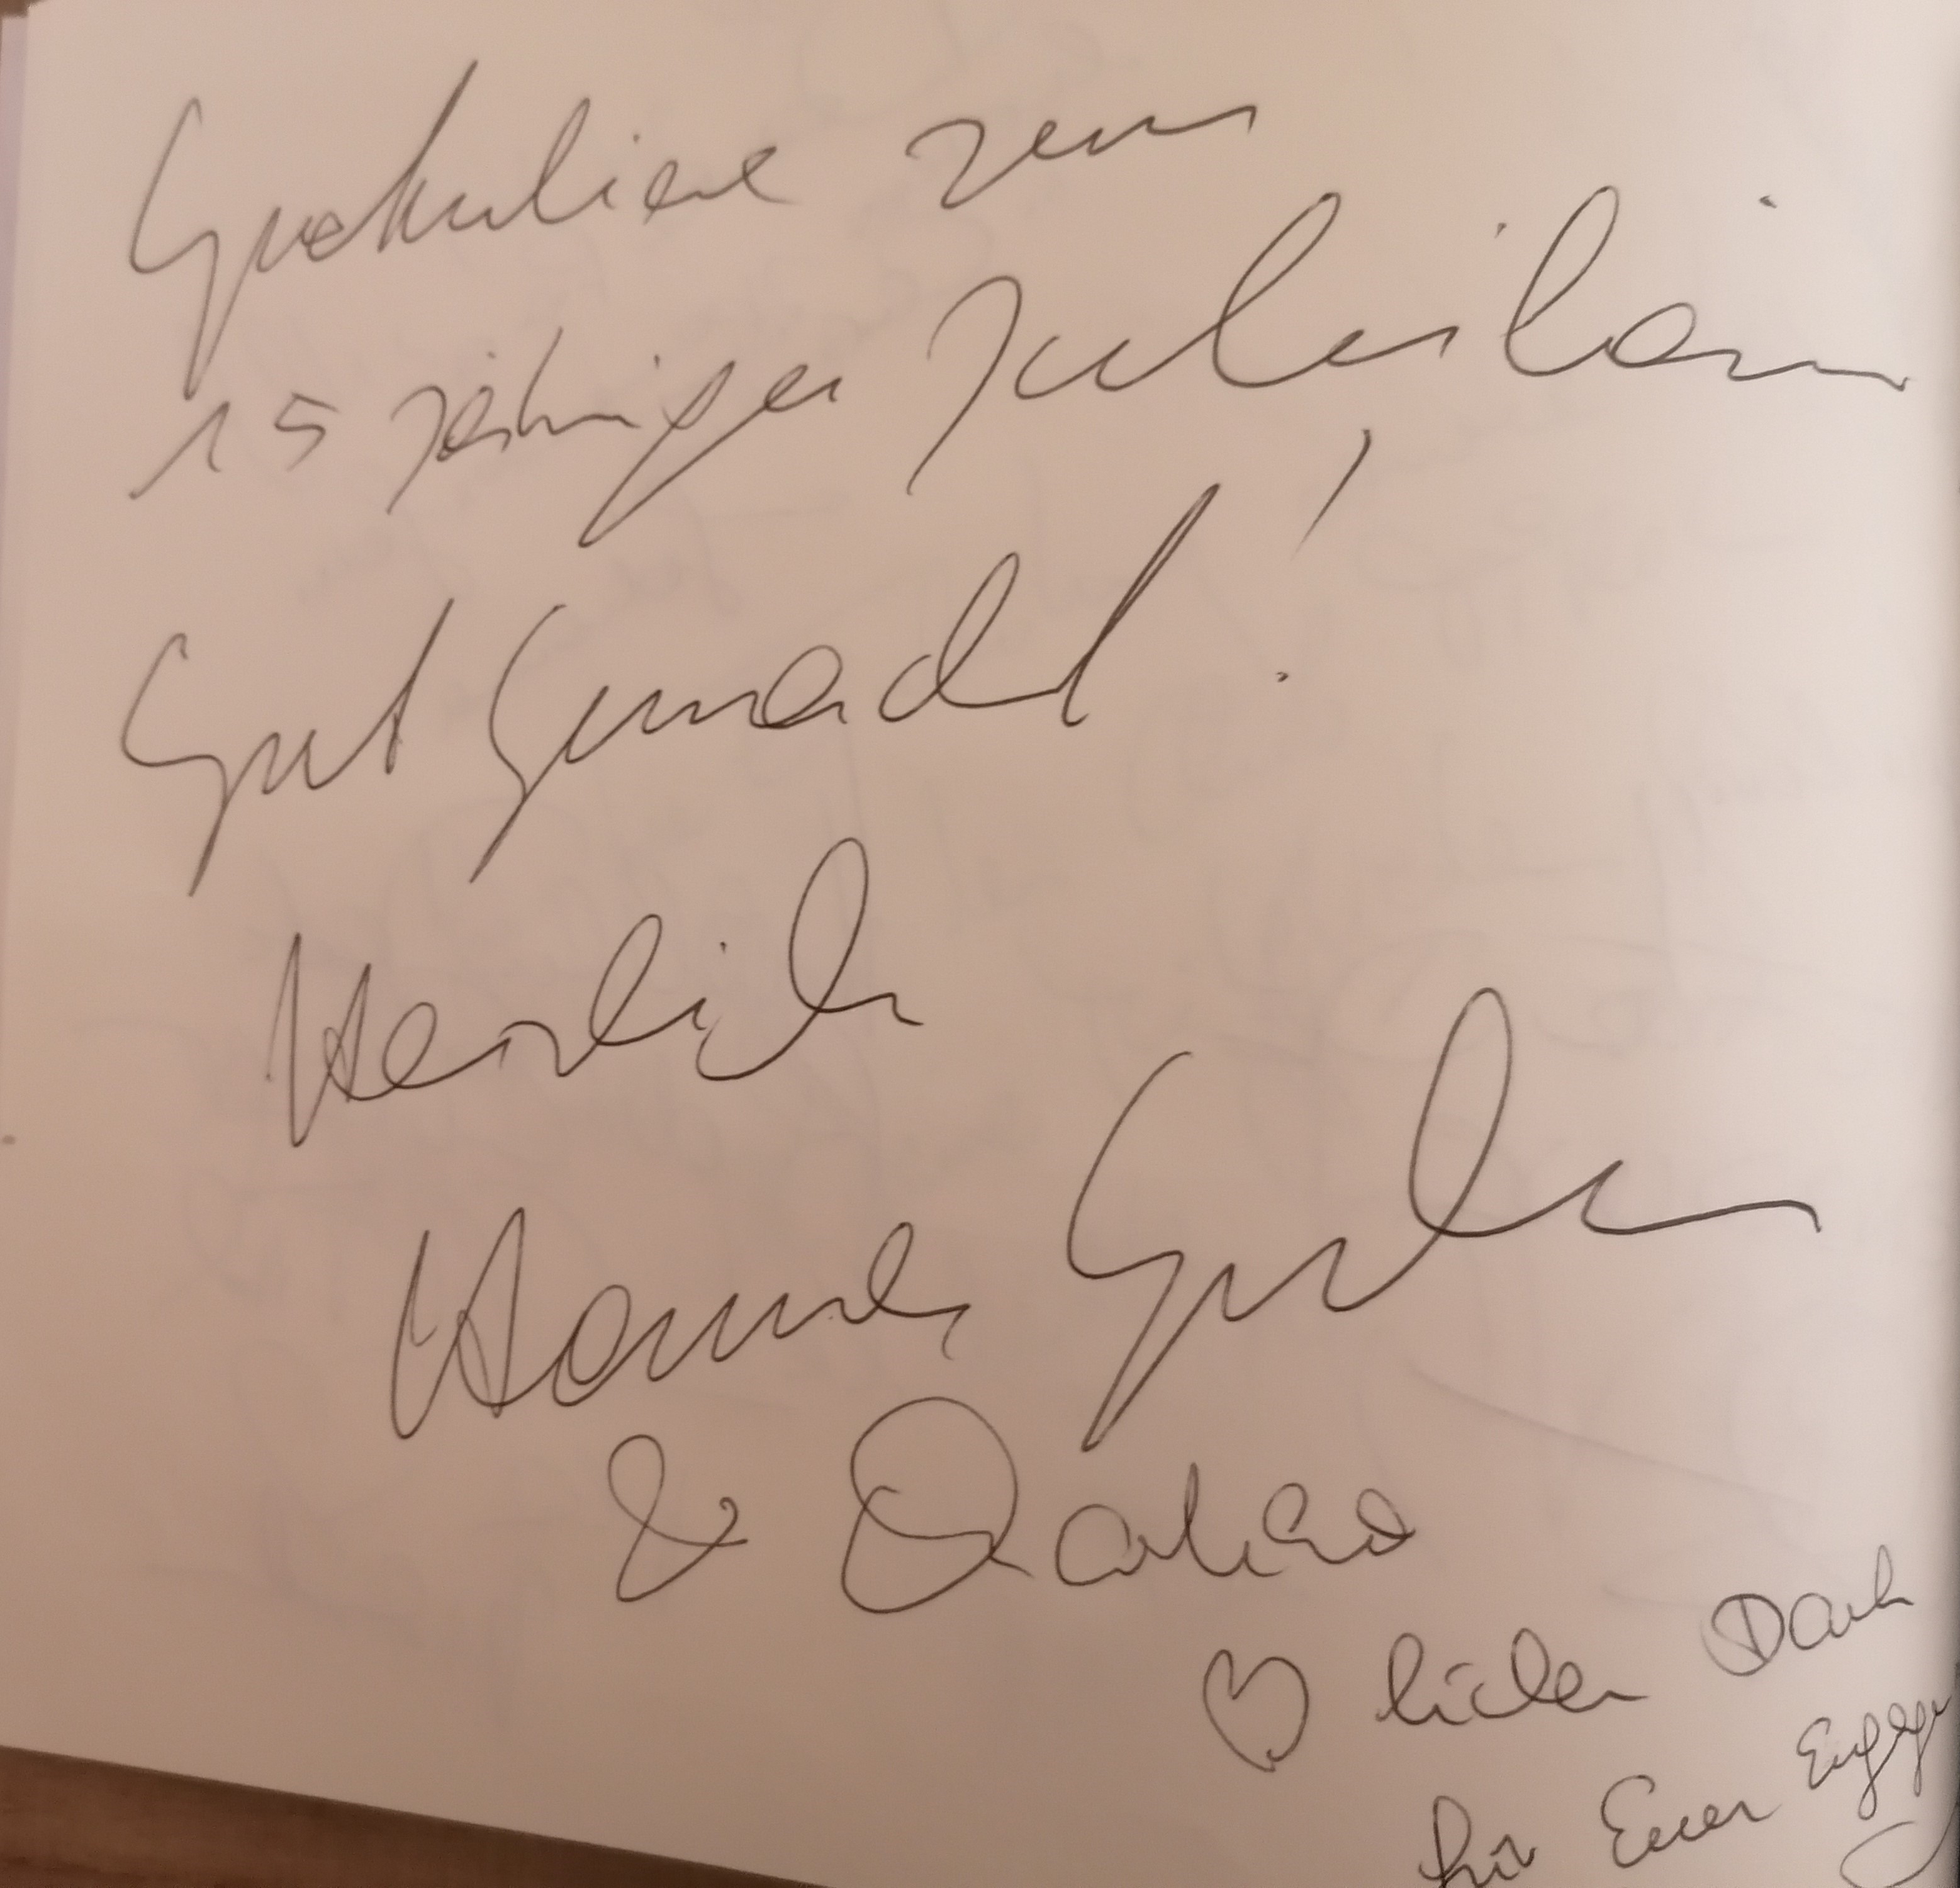 Gratuliere zum
15 jährigen Jubiläum
Gut Gemacht!
Herzlich
Hannes
&
♡ lichen Dank
für Euer